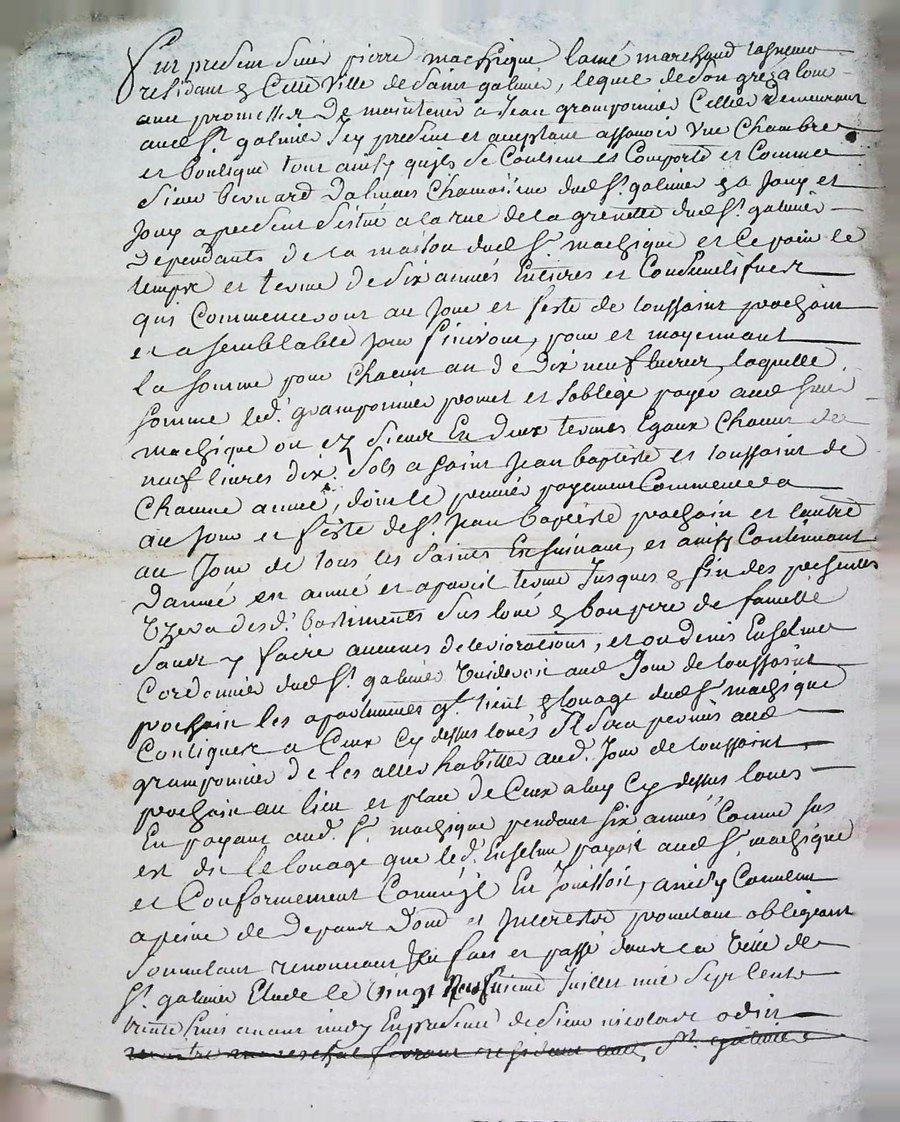 Fut present Sieur pierre machique laine marchand
residant en Cette Ville de Saint galmier, lequel de son gre a loue
avec promesse De maintenir a Jean gramponnier Cellier demeurant
aud St. galmier Icy present et aceptant assavoir Une Chambre
et boutique tout ainsy quils se Coulsent et Comporte et Comme
Sieur bernard Dalmais Chamoiseur dud St. galmier en a Jouy et
Jouy apresent Situé a la rue de la grenette dud St. galmier
Dependants de la maison dud Sr. machique et Ce pour le
temps et terme de Six années Entieres et Consecutifves
qui Commenceront au Jour et feste de toussaint prochain
et a semblable Jour finiront, pour et moyennant
La somme pour Chacun an de Dix neuf livres, laquelle
somme led. gramponnier promet et soblige payer aud Sieur
machique ou ez Siens En deux termes Egaux Chacun de
neuf livres dix Sols a Saint Jean baptiste et toussaint de
Chacune année, dont le premier payement Commencera
au Jour et feste de St. Jean Baptiste prochain et lautre
au Jour de tous les Saints Ensuivant, et ainsy Continuant
Dannée en année et a pareil terme Jusques en fin des presentes
Uzera desd. bastiments Sus loué en bon pere de famille
Sans y faire aucunes deteriorations, et ou denis Enselme
Cordonnier dud St. galmier Vuideroit aud Jour de toussaint
prochain les apartements qt. tient en louage dud Sr machique
Contiguez a Ceux Cy dessus loués Il Sera permis aud
gramponnier de les aller habitter aud. Jour de toussaint
prochain au lieu et place de Ceux a luy Cy dessus loues
En payant aud. Sr. machique pendant six années Comme sus
est dit le louage que led. Enselme payoit aud Sr machique
et Conformement Comme Il En Jouissoit, ainsy Convenu
a peine de Depans Dom et Interestz promettant obligeant
Soumettant renonceant fait et passé dans la Ville de
St. galmier Etude le vingt Juillet mil Sept Cents
trente huit avant midy En presence de Sieur nicolas odin
maitre mareschal ferrant residant aud. St. galmier